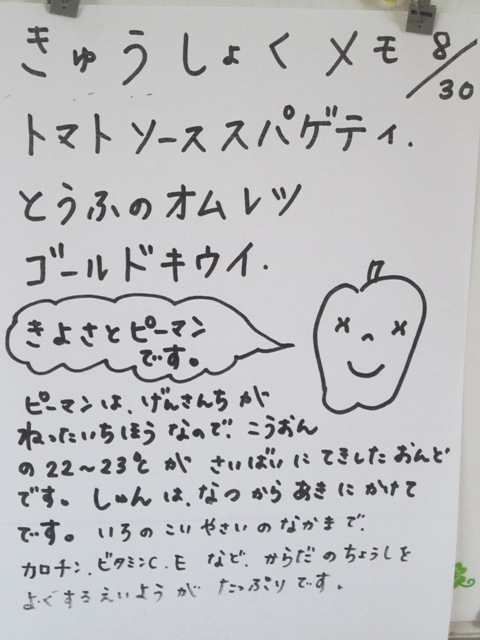 きゅうしょくメモ 8/30
トマトソーススパゲティ.
とうふのオムレツ
ゴールドキウイ.
きよさとピーマン
です。
ピーマンは、げんさんちが
ねったいちほうなので、こうおん
の22〜23℃が さいばいにてきしたおんど
です。しゅんは、なつからあきにかけて
です。いろのこいやさいのなかまで、
カロチン、ビタミンC、E など、からだのちょうしを
よくするえいようが たっぷりです。